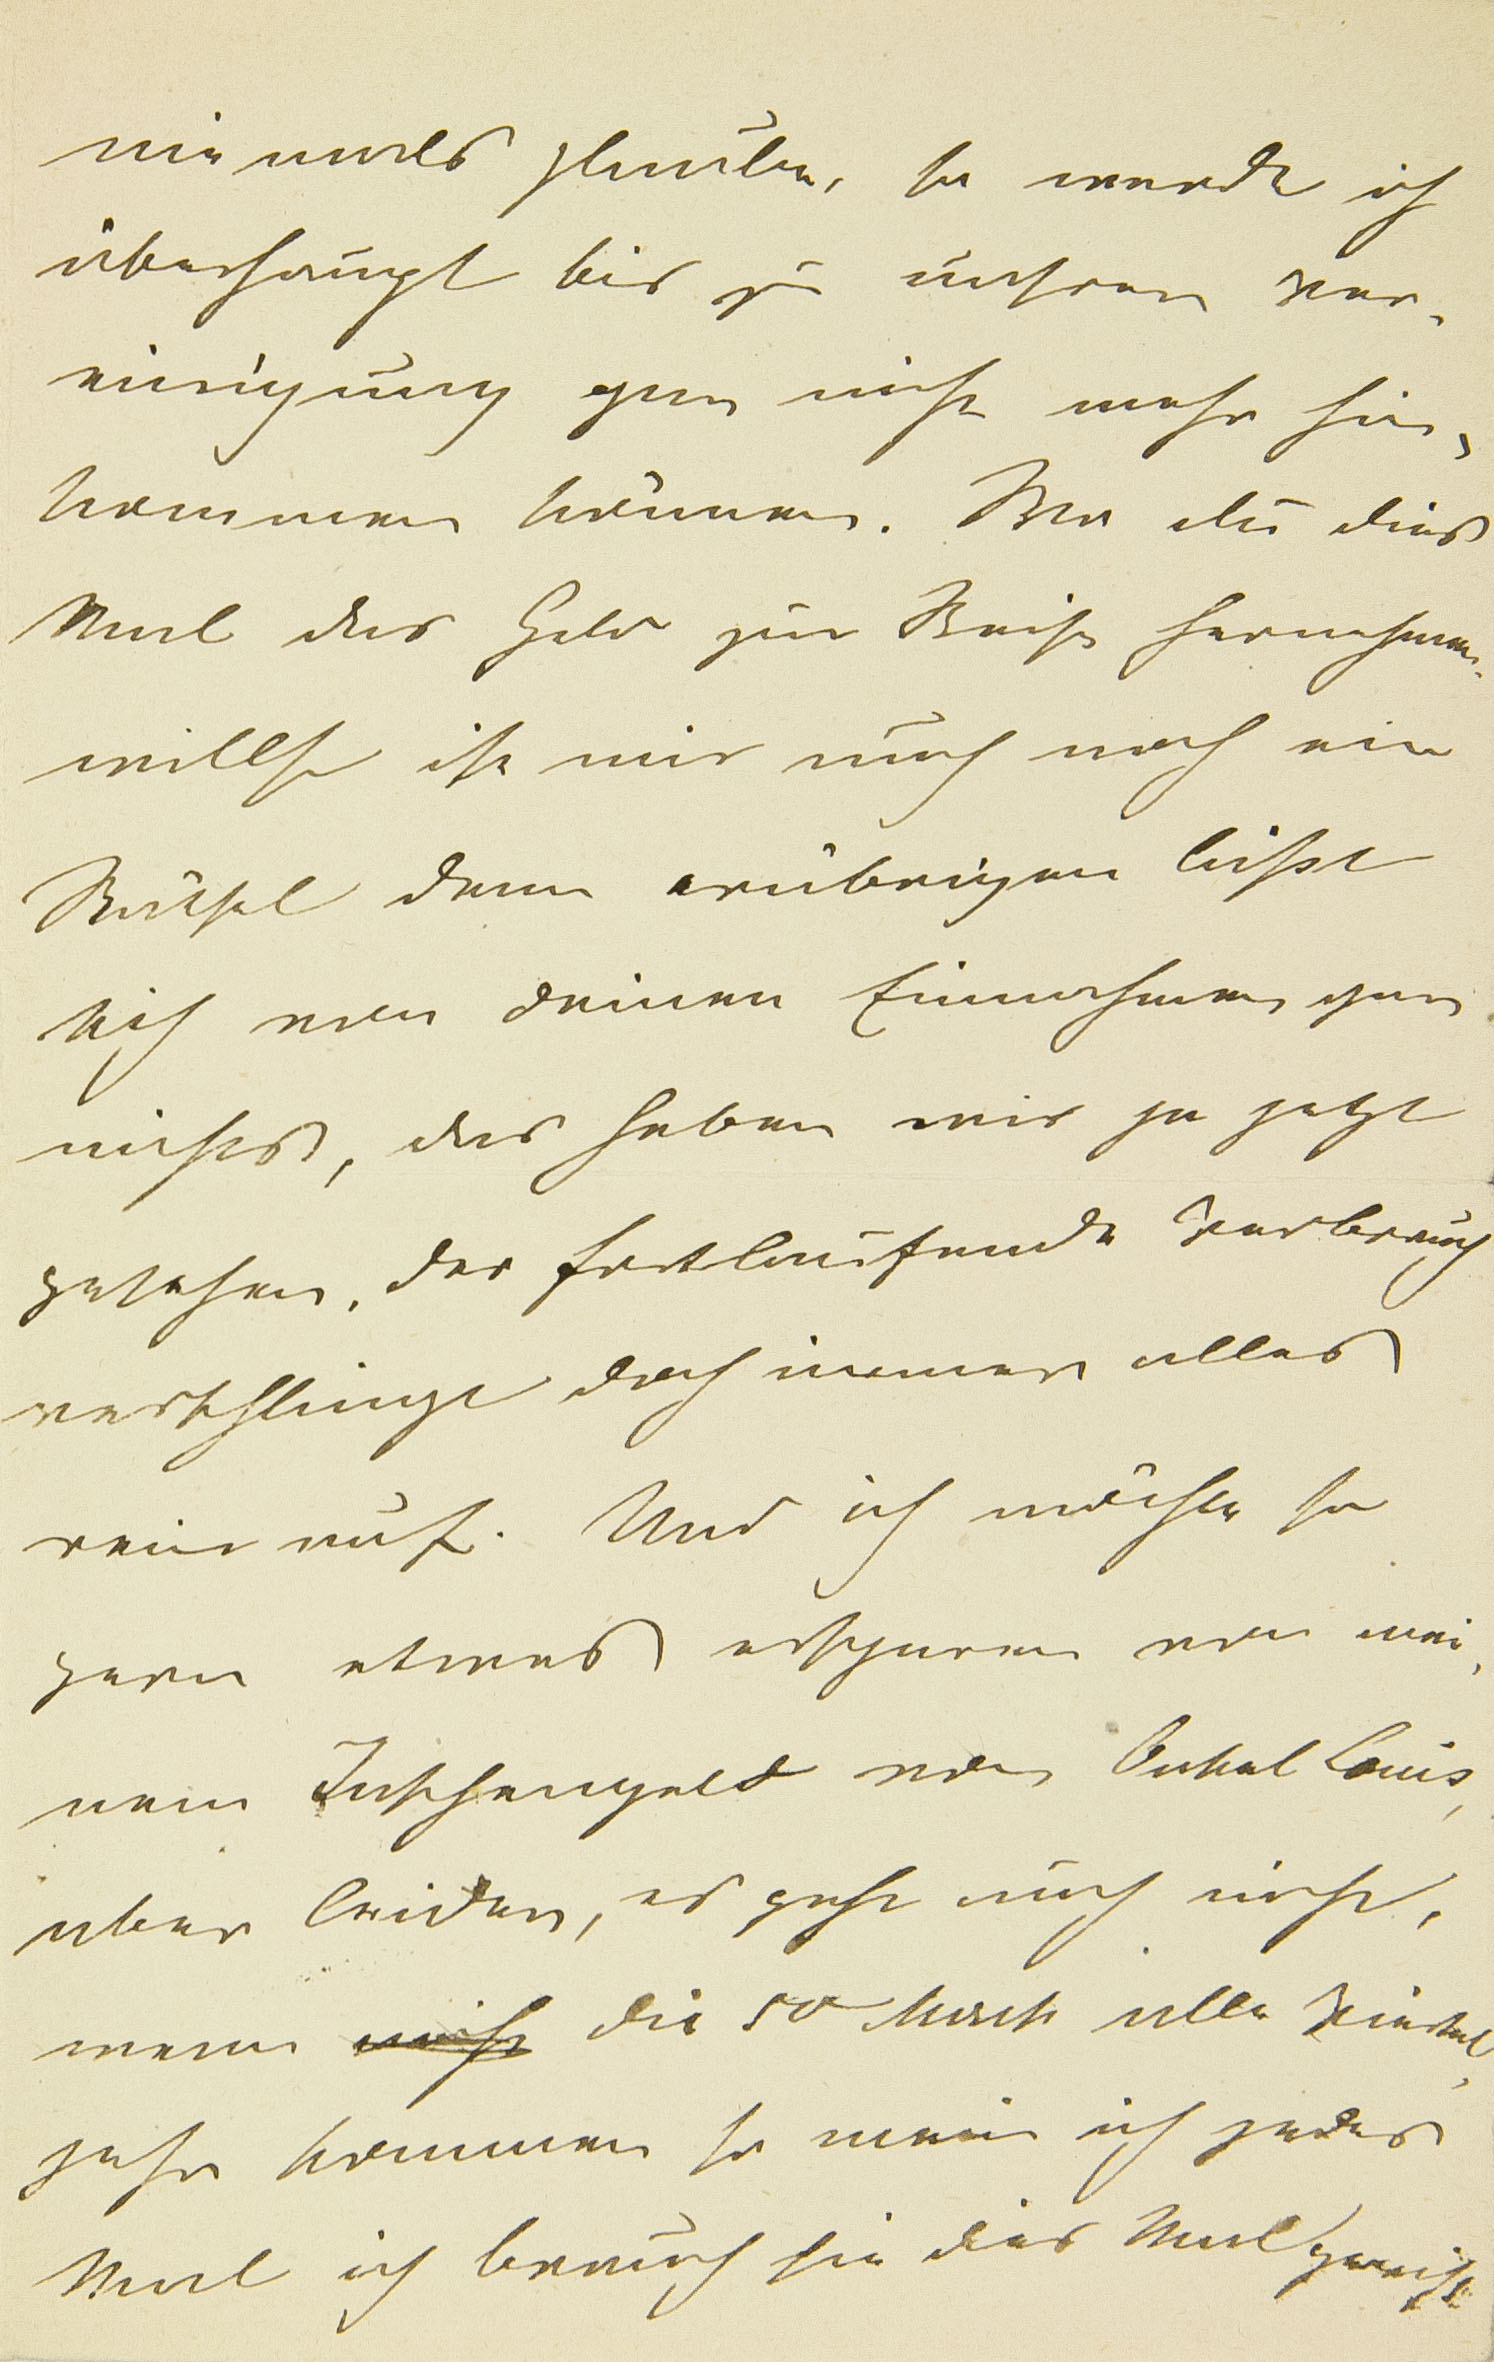 niemals glauben, so werde ich
überhaupt bis zu unsrer Ver-
einigung gar nicht mehr hin-
kommen können. Wo du dies
Mal das Geld zur Reise hernehmen
willst ist mir auch noch ein
Rätsel denn erübrigen läßt
sich von deinen Einnahmen gar
nichts, das haben wir ja jetzt
gesehen, der fortlaufende Verbrauch
verschlingt doch immer alles
rein auf. Und ich möchte so
gern etwas ersparen von mei-
nem Taschengeld von Onkel Louis,
aber leider, es geht auch nicht,
wenn nicht die 50 Mark alle Viertel-
jahr kommen so mein ich jedes
Mal ich brauch sie dies Mal gar nicht